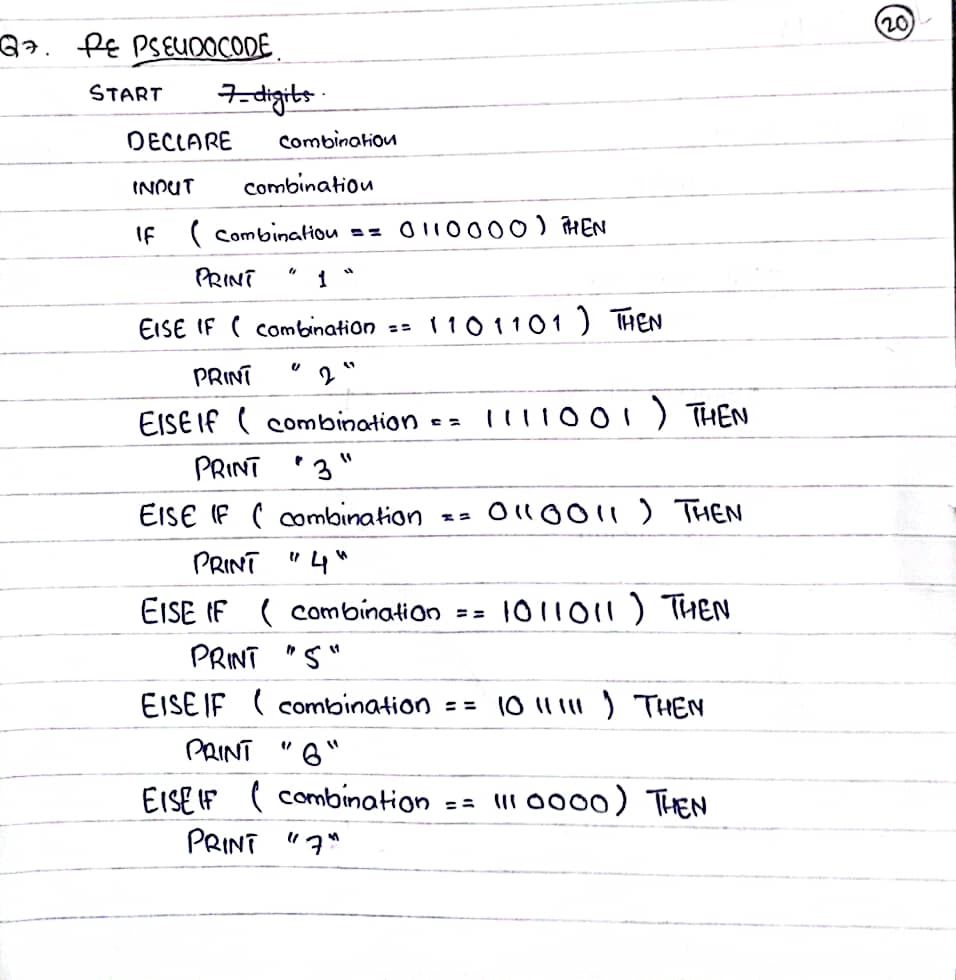 20
Q7. PE PSEUDOCODE.
START 7-digits.
DECLARE combination
INPUT combination
IF ( combination == 0110000 ) THEN
PRINT " 1 "
ElSE IF ( combination == 1101101 ) THEN
PRINT " 2 "
ElSE IF ( combination == 1111001 ) THEN
PRINT ' 3 "
ElSE IF ( combination == 0110011 ) THEN
PRINT " 4 "
ElSE IF ( combination == 1011011 ) THEN
PRINT " 5 "
ElSE IF ( combination == 1011111 ) THEN
PRINT " 6 "
ElSE IF ( combination == 1110000 ) THEN
PRINT " 7 "